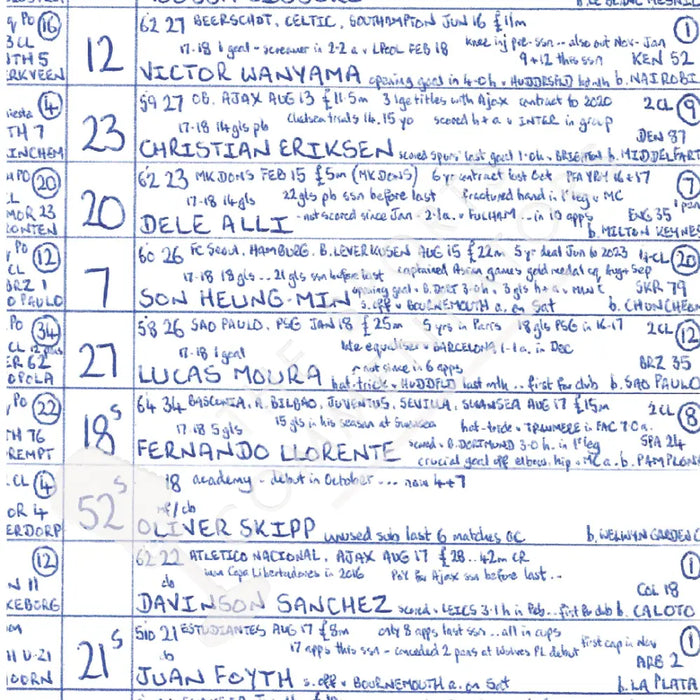 62 27 BEERSCHOT, CELTIC, SOUTHAMPTON JUN 16 £11m
17-18 1 goal - screamer in 2-2 a v LPOOL FEB 18 knee inj pre-ssn... also out Nov-Jan
9+12 this ssn KEN 52
12 VICTOR WANYAMA opening goal in 4-0 h v HUDDRSFLD b. NAIROBI
1
59 27 OB, AJAX AUG 13 £11.5m 3 lge titles with Ajax contract to 2020 2CL 9
17-18 14gls pb Chelsea trials 14, 15 yo scored h + a v INTER in group
DEN 87
23 CHRISTIAN ERIKSEN scored Spurs' last goal 1-0 h v BRIGHTON b. MIDDELFART
62 23 MK DONS FEB 15 £5m (MK DONS) 6 yr contract last Oct PFA YPR 16+17 7
17-18 14gls 22gls pb ssn before last fractured hand in 1st leg v MC
20 DELE ALLI - not scored since Jan - 2-1 a v FULHAM ... in 10 apps ENG 35
b. MILTON KEYNES
60 26 FC Seoul, HAMBURG, B. LEVERKUSEN AUG 15 £22m 5 yr deal Jun to 2023 4CL 20
17-18 18gls ... 21gls ssn before last captained Asian games gold medal Aug + Sep
opening goal v B.DORT 3-0 h + 3 gls h + a v MANC SKR 79
7 SON HEUNG-MIN s.off v BOURNEMOUTH a. on Sat b. CHUNCHEON
58 26 SAO PAULO, PSG JAN 18 £25m 5 yrs in Paris 18gls PSG in 16-17 2CL 12
17-18 1 goal late equaliser v BARCELONA 1-1 a. in DEC
not since in 6 apps BRZ 35
27 LUCAS MOURA hat-trick v HUDDFLD last mth... first for club b. SAO PAULO
64 34 BASCONIA, A. BILBAO, JUVENTUS, SEVILLA, SWANSEA AUG 17 £15m 2CL 8
17-18 5gls 15gls in his season at Swansea hat-trick v TRANMERE in FAC 7-0 a.
18s FERNANDO LLORENTE scored v B.DORTMUND 3-0 h. in 1st leg SPA 24
crucial goal off elbow, hip v MC a. b. PAMPLONA
18 academy - debut in October ... now 4+7
mf/cb
52s OLIVER SKIPP unused sub last 6 matches b. WELWYN GARDEN C
62 22 ATLETICO NACIONAL, AJAX AUG 17 £28...42m CR 1
cb won Copa Libertadores in 2016 PoY for Ajax ssn before last..
COL 18
DAVINSON SANCHEZ scored v LEICS 3-1 h in Feb.. first for club b. CALOTO
510 21 ESTUDIANTES AUG 17 £8m only 8 apps last ssn ... all in cups
first cap in Nov 1
17 apps this ssn - conceded 2 pens at Wolves PL debut
ARG 2
21s JUAN FOYTH s.off v BOURNEMOUTH a. on Sat b. LA PLATA